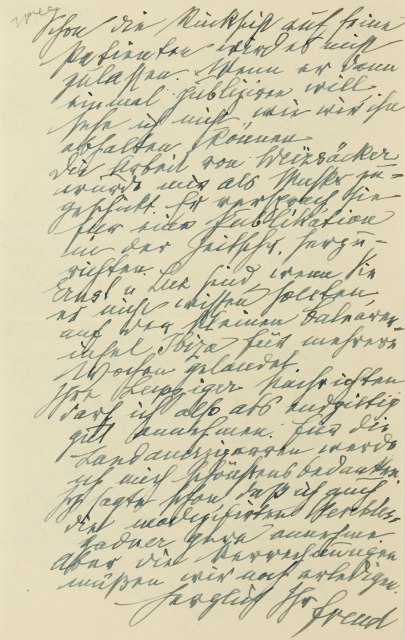 Schon die Rücksicht auf seine
Patienten wird es nicht
zulassen. Wenn er dann
einmal publiziren will
sehe ich nicht, wie wir ihn
abhalten können
Die Arbeit von Weizsäcker
wurde mir als Muster zu-
geschickt. Er versprach sie
für eine Publikation
in der Zeitschr. herzu-
richten.
Ernst u Lux sind, wenn Sie
es nicht wissen sollten,
auf der kleinen Balearen-
insel Ibiza für mehrere
Wochen gelandet.
Ihre Leipziger Nachrichten
darf ich also als endgiltig
gut annehmen. Für die
werde
ich mich schönstens bedanken.
Ich sagte schon, daß ich auch
die modifizirten
gern annehme.
Aber die Verrechnungen
müßen wir noch erledigen.
Herzlich Ihr Freud